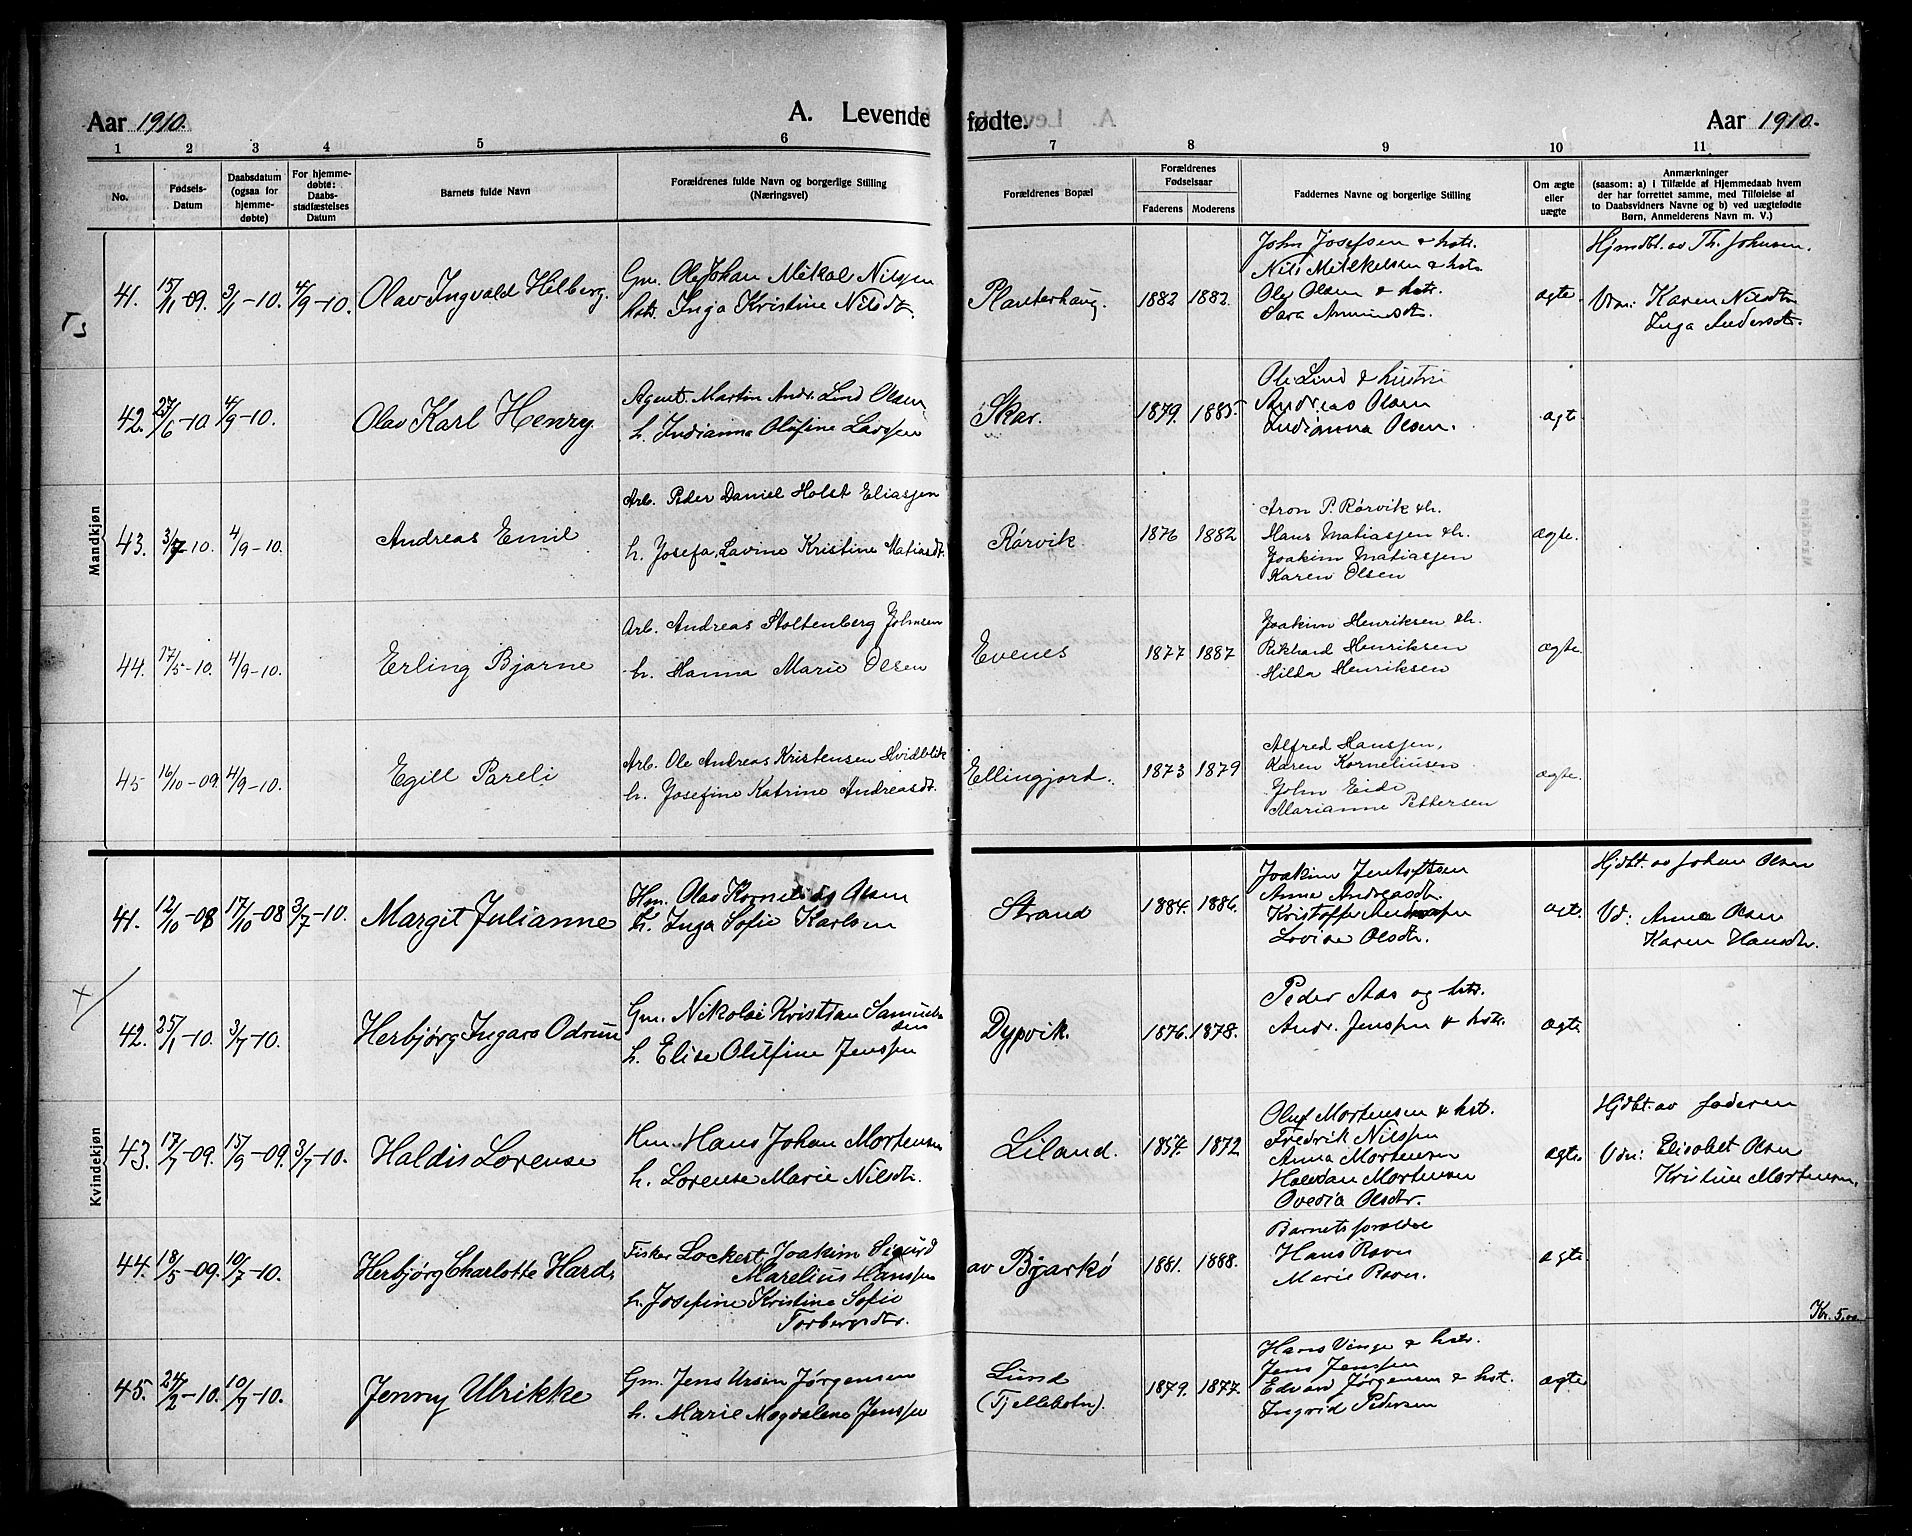 Aar 1910.
A. Levende fødte.
Aar 1910.
1 2 3 4 5 6 7 8 9 10 11
No.
Fødsels-
Datum
Daabsdatum
(ogsaa for
hjemme-
døbte)
For hjemme-
døbte:
Daabs-
stadfæstelses
Datum
Barnets fulde Navn
Forældrenes fulde Navn og borgerlige Stilling
(Næringsvei)
Forældrenes Bopæl
Forældrenes
Fødselsaar
Faderens Moderens
Faddernes Navne og borgerlige Stilling
Om ægte
eller
uægte
Anmærkninger
(saasom: a) i Tilfælde af Hjemmedaab hvem
der har forrettet samme, med Tilføielse af
to Daabsvidners Navne og b) ved uægtefødte
Børn, Anmelderens Navn m. V.)
Mandkjøn
41. 15/1-09. 3/1-10. 4/9-10. Olav Ingvald Hilberg.
Gm. Ole Johan Mikal Nilssen
hstr. Inga Kristine Nilsdt.
Planterhaug. 1882 1882.
John Josefsen & hstr.
Nils Mikkelsen & hstr.
Ole Olsen & hstr.
Sara Amundsdt.
ægte
Hjmdbt. av Th. Johnsen.
Vdn: Karen Nilsdtr
Inga Andersdtr.
42. 27/6-10 4/9-10. Olav Karl Henry.
Agent. Martin Andr. Lind Olsen,
h. Indianna Olufine Larssen
Skar. 1879. 1885.
Ole Lind & hustru
Andreas Olsen
Indianna Olsen.
ægte
43. 3/7-10. 4/9-10. Andreas Emil
Arb. Peder Daniel Holst Eliassen
h. Josefa Lavine Kristine Matiasdt.
Rørvik. 1876 1882
Aron P. Rørvik & h.
Hans Matiassen & h.
Joakim Matiassen
Karen Olsen
ægte.
44. 17/5-10. 4/9-10. Erling Bjarne
Arb. Andreas Stoltenberg Johnsen
h. Hanna Marie Olsen
Evenes 1877 1887
Joakim Henriksen & h.
Rikhard Henriksen
Hilda Henriksen
ægte.
45 16/10-09. 4/9-10. Egill Pareli
Arb. Ole Andreas Kristensen Hvidblik
h. Josefine Katrine Andreasdt.
Ellingjord. 1873 1879
Alfred Hanssen,
Karen Korneliusen
John Eide
Marianne Pettersen
ægte.
Kvindekjøn
41. 12/10-08 17/10-08 3/7-10. Margit Julianne
Hm. Olav Kornelius Olsen
h. Inga Sofie Karlsen
Strand 1884. 1886.
Joakim Jentoftsen
Anna Andreasdt.
Kristoffer
Lovise Olsdtr.
ægte.
Hjdbt. av Johan Olsen
Vd: Anna Olsen
Karen Hansdtr.
42. 25/1-10. 3/7-10. Herbjørg Ingara Odrun
Gm. Nikolai Kristian Samuel-
sen
h. Elise Olufine Jenssen
Dypvik. 1876. 1878.
Peder Aas og hstr.
Andr. Jenssen & hstr.
ægte
43. 17/7-09. 15/9-09. 3/7-10. Haldis Lorense
Hm. Hans Johan Mortensen
h. Lorense Marie Nilsdtr.
Liland. 1854. 1872
Oluf Mortensen & hst.
Fredrik Nilssen
Anna Mortensen
Halvdan Mortensen
Ovedia Olsdtr.
ægte.
Hjdbt. av faderen
Vdn: Elisabet Olsen
Kristine Mortensen.
44. 18/5-09. 10/7-10. Herbjørg Charlotte Hards
Fisker Lockert Joakim Sigurd
Marelius Hanssen
h. Josefine Kristine Sofie
Torbergsdtr.
av Bjarkø 1881. 1888.
Barnets forældre
Hans Ravn
Marie Ravn.
ægte
Kr. 5.00
45. 24/2-10. 10/7-10. Jenny Ulrikke
Gm. Jens Ursin Jørgensen
h. Marie Magdalena Jenssen
Lund
(Tjellebotn). 1879. 1877.
Hans Vinge & hstr.
Jens Jenssen
Edvard Jørgensen & hst.
Ingrid Pedersen
ægte